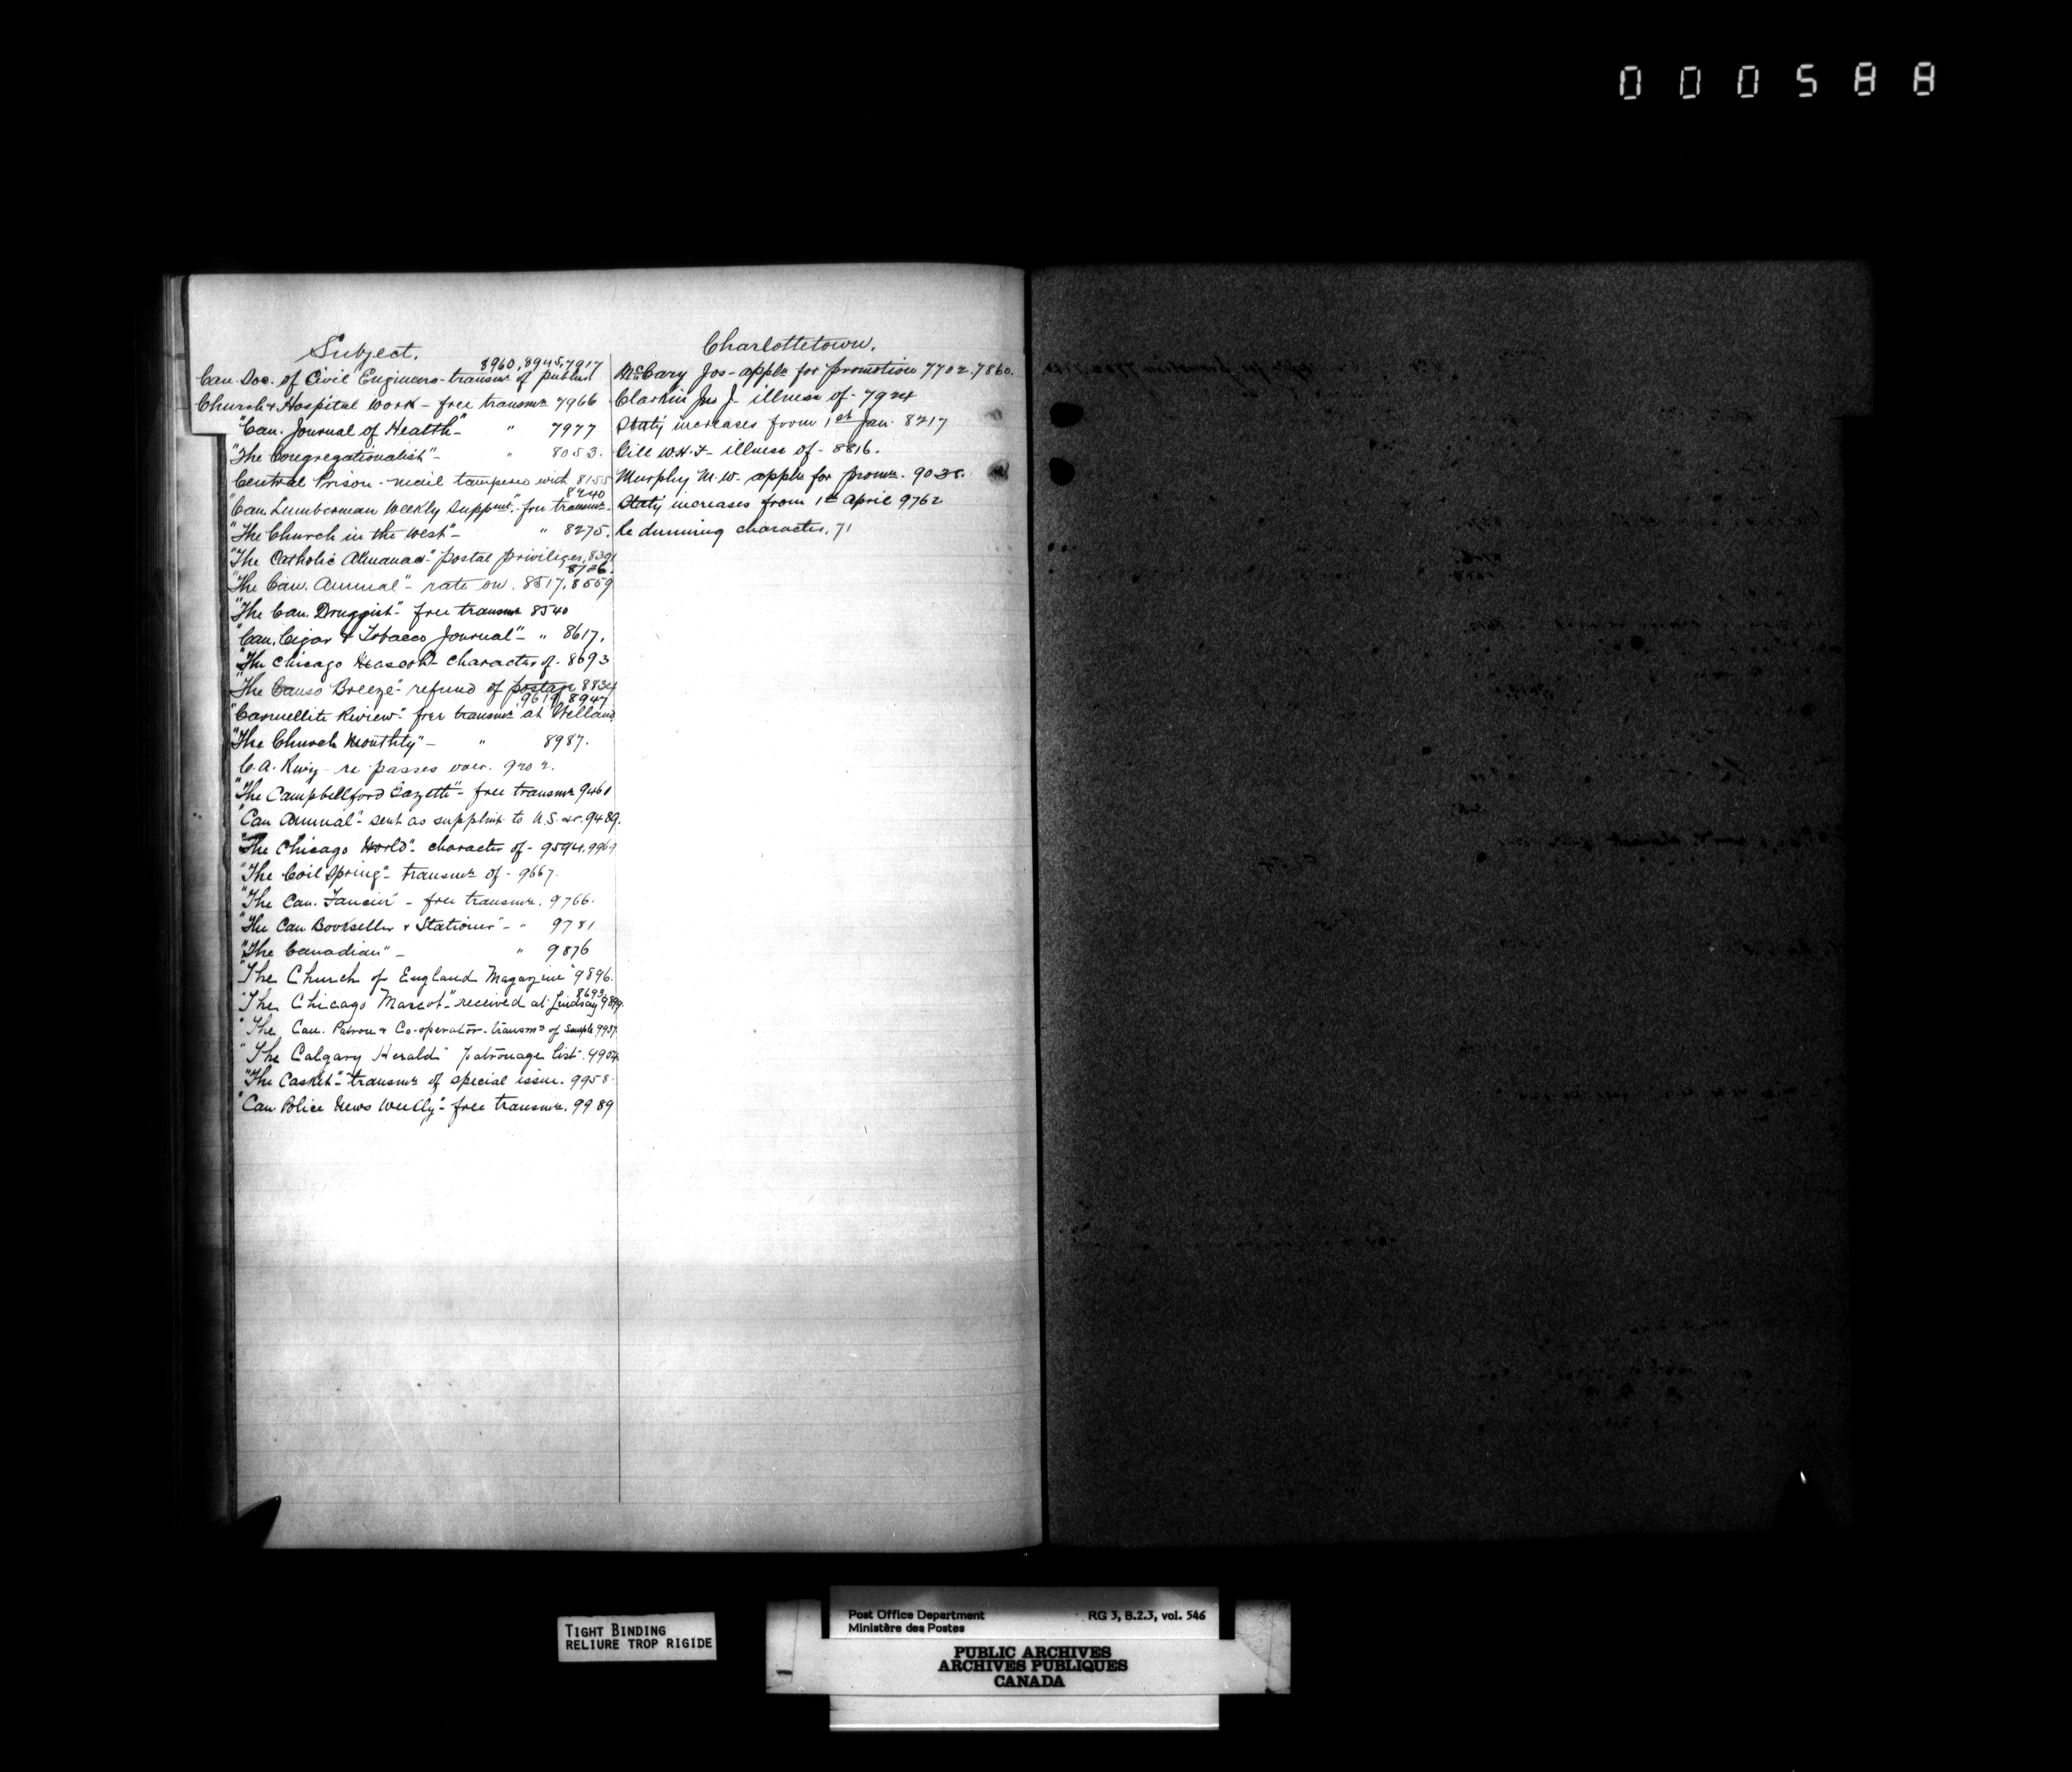 000588
Subject.
8960, 8945, 7917
Can. Soc. of Civil Engineers - transmn of publns
Church & Hospital Work - free transmn 7966
"Can. Journal of Health" - " 7977
"The Congregationalist" - " 8053.
Central Prison - mail tampered with 8155
8240
"Can. Lumberman Weekly Suppmt." free transmn.
"The Church in the West" - " 8275.
"The Catholic Almanac" - postal privileges, 8391
8726.
"The Can. Annual" - rate on. 8517, 8559
"The Can. Druggist" - free transmn 8540
"Can. Cigar & Tobacco Journal" - " 8617.
"The Chicago Mascot" - character of - 8693
"The Canso Breeze" - refund of postage 8834
9619, 8947
"Carmellite Review" - free transmn at Welland
"The Church Monthly" - " 8987.
C.A. Rwy - re passes over. 9202.
"The Campbellford Gazette" - free transmn 9461
"Can Annual" - sent as supplmt to U.S. &c. 9489.
"The Chicago World" - character of - 9594, 9969
"The Coil Spring" - transmn of - 9667.
"The Can. Fancier" - free transmn. 9766.
"The Can Bookseller & Stationer" - " 9781
"The Canadian" - " 9876
"The Church of England Magazine" 9896.
8693
"The Chicago Mascot" - received at Lindsay 9899.
"The Can. Patron & Co-operator - transmn of sample 9937.
"The Calgary Herald" patronage list - 9954
"The Casket" - transmn of special issue. 9958.
"Can. Police News Weekly" - free transmn. 9989
Charlottetown.
McCary Jos - appln for promotion 7702. 7860.
Clarkin Jas J. illness of - 7924
Staty increases from 1st Jan. 8217
Gill W.H.F - illness of - 8816.
Murphy M.W. appln for promn. 9038.
Staty increases from 1st April 9762
Re dunning character, 71
TIGHT BINDING
RELIURE TROP RIGIDE
Post Office Department RG 3, B.2.3, vol. 546
Ministère des Postes
PUBLIC ARCHIVES
ARCHIVES PUBLIQUES
CANADA